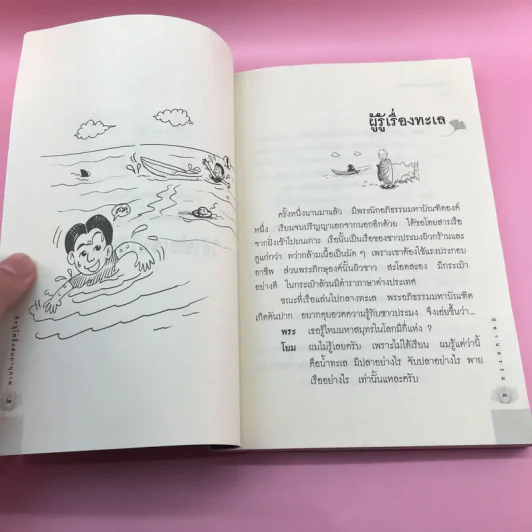 ผู้รู้เรื่องทะเล
ครั้งหนึ่งนานมาแล้ว มีพระนักอภิธรรมมหาบัณฑิตองค์
หนึ่ง เรียนจบปริญญาเอกจากนอกอีกด้วย ได้ขอโดยสารเรือ
จากฝั่งเข้าไปบนเกาะ เรือนั้นเป็นเรือของชาวประมงผิวกร้านและ
ดูแก่กว่า ทว่ากล้ามเนื้อเป็นมัด ๆ เพราะเขาต้องใช้แรงประกอบ
อาชีพ ส่วนพระภิกษุองค์นั้นผิวขาว สะโอดสะอง มีกระเป๋า
อย่างดี ในกระเป๋าล้วนมีตำราภาษาต่างประเทศ
ขณะที่เรือแล่นไปกลางทะเล พระอภิธรรมมหาบัณฑิต
เกิดคันปาก อยากคุยอวดความรู้กับชาวประมง จึงเอ่ยขึ้นว่า...
พระ เธอรู้ไหมมหาสมุทรในโลกมีกี่แห่ง ?
โยม ผมไม่รู้เลยครับ เพราะไม่ได้เรียน ผมรู้แค่ว่านี้
คือน้ำทะเล มีปลาอย่างไร จับปลาอย่างไร พาย
เรืออย่างไร เท่านั้นแหละครับ
นิทานธรรม